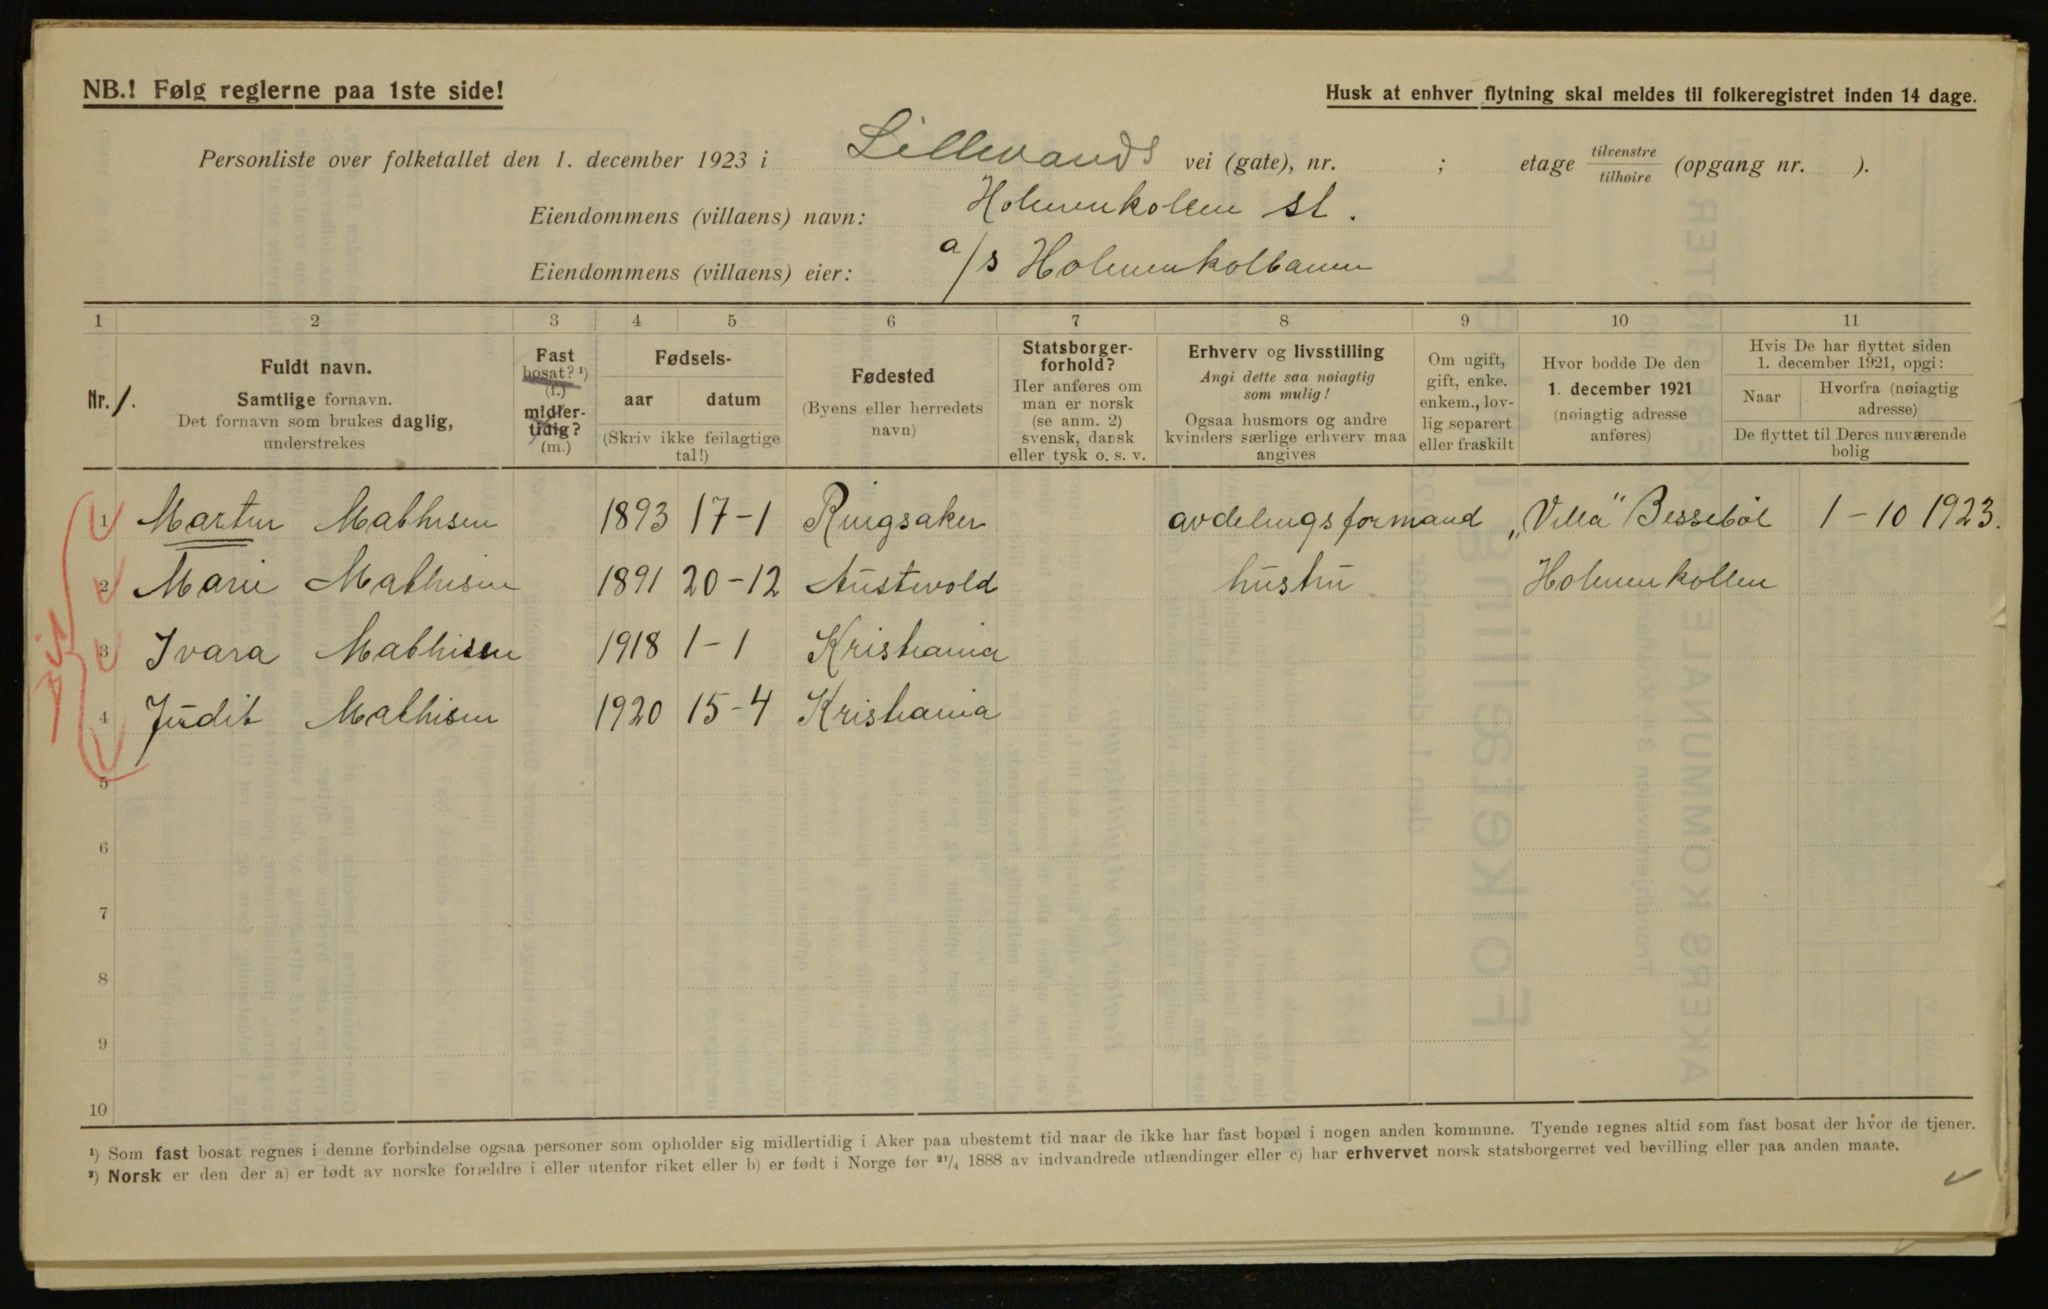 NB.! Følg reglerne paa 1ste side!
Husk at enhver flytning skal meldes til folkeregistret inden 14 dage.
Personliste over folketallet den 1. december 1923 i Lillevands vei (gate), nr. ; etage tilvenstre / tilhøire (opgang nr. ).
Eiendommens (villaens) navn: Holmenkollen st.
Eiendommens (villaens) eier: a/s Holmenkolbanen
1 2 3 4 5 6 7 8 9 10 11
Nr. 1.
Fuldt navn.
Samtlige fornavn.
Det fornavn som brukes daglig,
understrekes
Fast
bosat? ¹)
(f.)
midler-
tidig?
(m.)
Fødsels-
aar datum
(Skriv ikke feilagtige
tal!)
Fødested
(Byens eller herredets
navn)
Statsborger-
forhold?
Her anføres om
man er norsk
(se anm. 2)
svensk, dansk
eller tysk o. s. v.
Erhverv og livsstilling
Angi dette saa nøiagtig
som mulig!
Ogsaa husmors og andre
kvinders særlige erhverv maa
angives
Om ugift,
gift, enke.
enkem., lov-
lig separert
eller fraskilt
Hvor bodde De den
1. december 1921
(nøiagtig adresse
anføres)
Hvis De har flyttet siden
1. december 1921, opgi:
Naar Hvorfra (nøiagtig
adresse)
De flyttet til Deres nuværende
bolig
1 Martin Mathisen 1893 17-1 Ringsaker avdelingsformand „Villa" Bessebøl 1-10 1923.
2 Marie Mathisen 1891 20-12 Austevold hustru Holmenkollen
3 Ivara Mathisen 1918 1-1 Kristiania
4 Judit Mathisen 1920 15-4 Kristiania
5
6
7
8
9
10
¹) Som fast bosat regnes i denne forbindelse ogsaa personer som opholder sig midlertidig i Aker paa ubestemt tid naar de ikke har fast bopæl i nogen anden kommune. Tyende regnes altid som fast bosat der hvor de tjener.
²) Norsk er den der a) er født av norske forældre i eller utenfor riket eller b) er født i Norge før ²¹/₄ 1888 av indvandrede utlændinger eller c) har erhvervet norsk statsborgerret ved bevilling eller paa anden maate.